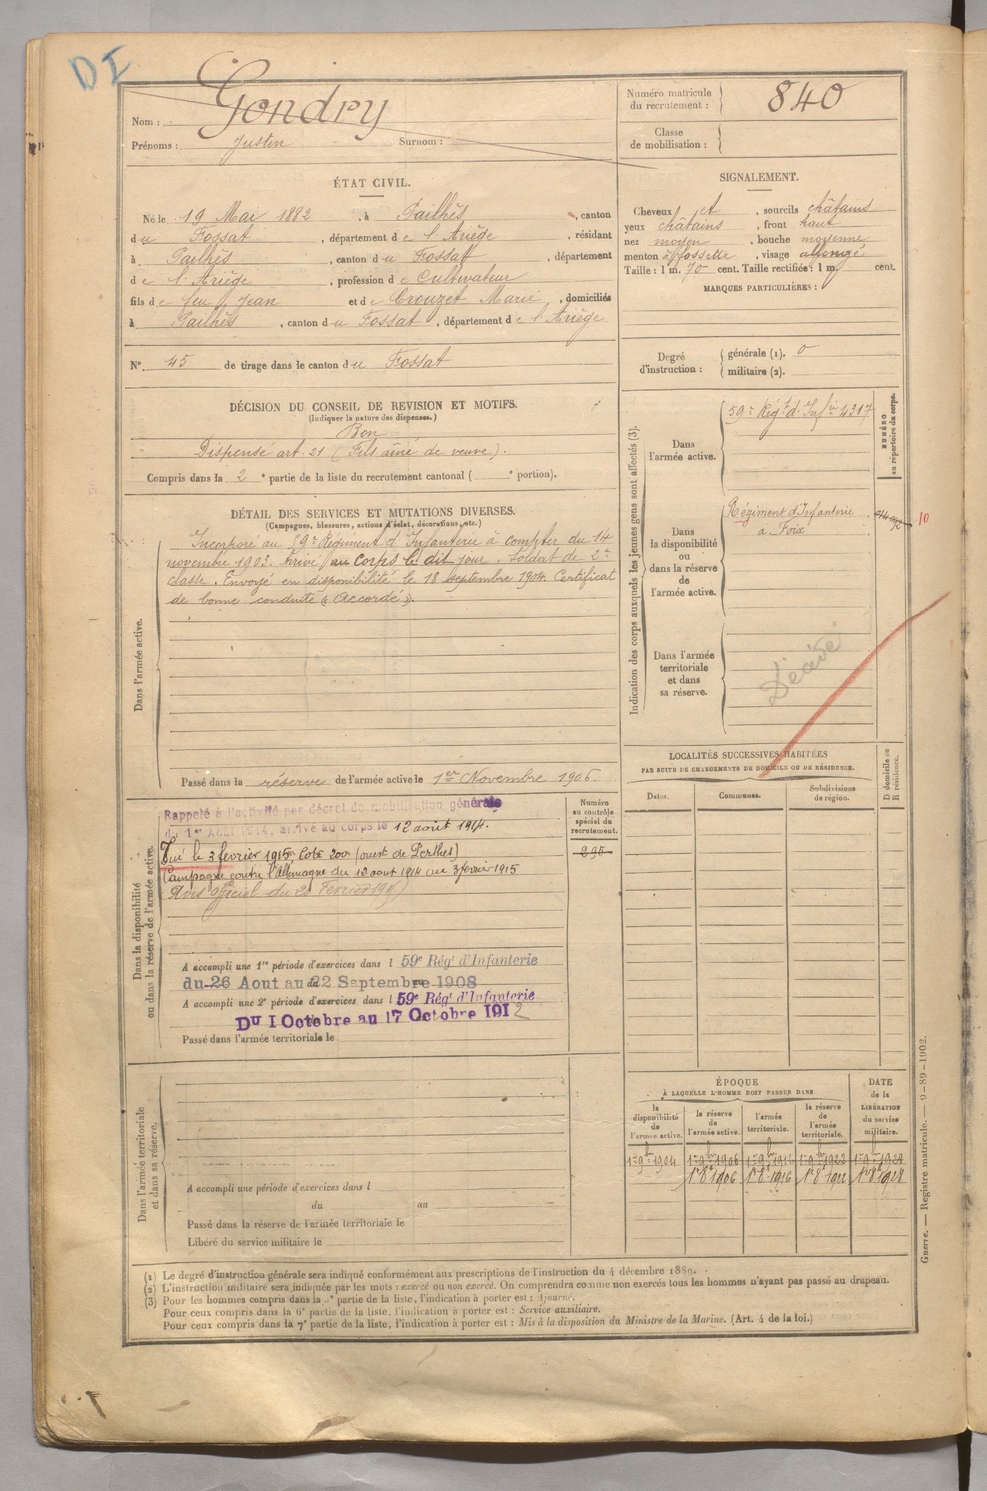 DI
Nom : Gondry
Prénoms : Justin Surnom :
Numéro matricule du recrutement : 840
Classe de mobilisation :
ÉTAT CIVIL.
Né le 19 Mai 1882 , à Pailhès , canton
du Fossat , département de l'Ariège , résidant
à Pailhès , canton du Fossat , département
de l'Ariège , profession de Cultivateur
fils de feu Jean et de Crouzet Marie , domiciliés
à Pailhès , canton du Fossat , département de l'Ariège
N° 45 de tirage dans le canton du Fossat
SIGNALEMENT.
Cheveux et , sourcils châtains
yeux châtains , front haut
nez moyen , bouche moyenne
menton à fossette , visage allongé
Taille : 1 m. 70 cent. Taille rectifiée : 1 m. cent.
MARQUES PARTICULIÈRES :
Degré d'instruction : générale (1). 0
militaire (2).
DÉCISION DU CONSEIL DE REVISION ET MOTIFS.
(Indiquer la nature des dispenses.)
Bon
Dispensé art. 21 (Fils aîné de veuve).
Compris dans la 2e partie de la liste du recrutement cantonal ( e portion).
DÉTAIL DES SERVICES ET MUTATIONS DIVERSES.
(Campagnes, blessures, actions d'éclat, décorations, etc.)
Dans l'armée active.
Incorporé au 59e Régiment d'Infanterie à compter du 14
novembre 1903. Arrivé au corps le dit jour. Soldat de 2e
classe. Envoyé en disponibilité le 18 septembre 1904. Certificat
de bonne conduite « Accordé ».
Passé dans la réserve de l'armée active le 1er Novembre 1906.
Indication des corps auxquels les jeunes gens sont affectés (3).
NUMÉRO au répertoire du corps.
Dans l'armée active.
59e Régt d'Infie 4317
Dans la disponibilité ou dans la réserve de l'armée active.
Régiment d'Infanterie
à Foix
10
Dans l'armée territoriale et dans sa réserve.
Décédé
LOCALITÉS SUCCESSIVES HABITÉES
PAR SUITE DE CHANGEMENTS DE DOMICILE OU DE RÉSIDENCE.
Dates. Communes. Subdivisions de région. D domicile ou R résidence.
Dans la disponibilité ou dans la réserve de l'armée active.
Numéro au contrôle spécial du recrutement.
295
Rappelé à l'activité par décret de mobilisation générale
du 1er Août 1914, arrivé au corps le 12 août 1914.
Tué le 3 février 1915 Cote 200 (ouest de Perthes)
Campagne contre l'Allemagne du 12 août 1914 au 3 février 1915
Avis officiel du 20 février 1915
A accompli une 1re période d'exercices dans l 59e Régt d'Infanterie
du 26 Aout au 22 Septembre 1908
A accompli une 2e période d'exercices dans l 59e Régt d'Infanterie
Du 1 Octobre au 17 Octobre 1912
Passé dans l'armée territoriale le
Dans l'armée territoriale et dans sa réserve.
A accompli une période d'exercices dans l
du au
Passé dans la réserve de l'armée territoriale le
Libéré du service militaire le
ÉPOQUE
À LAQUELLE L'HOMME DOIT PASSER DANS
DATE de la LIBÉRATION du service militaire.
la disponibilité de l'armée active. la réserve de l'armée active. l'armée territoriale. la réserve de l'armée territoriale.
1er 9bre 1904 1er 9bre 1906 1er 9bre 1916 1er 9bre 1922 1er 9bre 1928
1er 8bre 1906 1er 8bre 1916 1er 8bre 1922 1er 8bre 1928
(1) Le degré d'instruction générale sera indiqué conformément aux prescriptions de l'instruction du 4 décembre 1889.
(2) L'instruction militaire sera indiquée par les mots : exercé ou non exercé. On comprendra comme non exercés tous les hommes n'ayant pas passé au drapeau.
(3) Pour les hommes compris dans la e partie de la liste, l'indication à porter est : Ajourné.
Pour ceux compris dans la 6e partie de la liste, l'indication à porter est : Service auxiliaire.
Pour ceux compris dans la 7e partie de la liste, l'indication à porter est : Mis à la disposition du Ministre de la Marine. (Art. 4 de la loi.)
Guerre. — Registre matricule. — 9-89-1902.